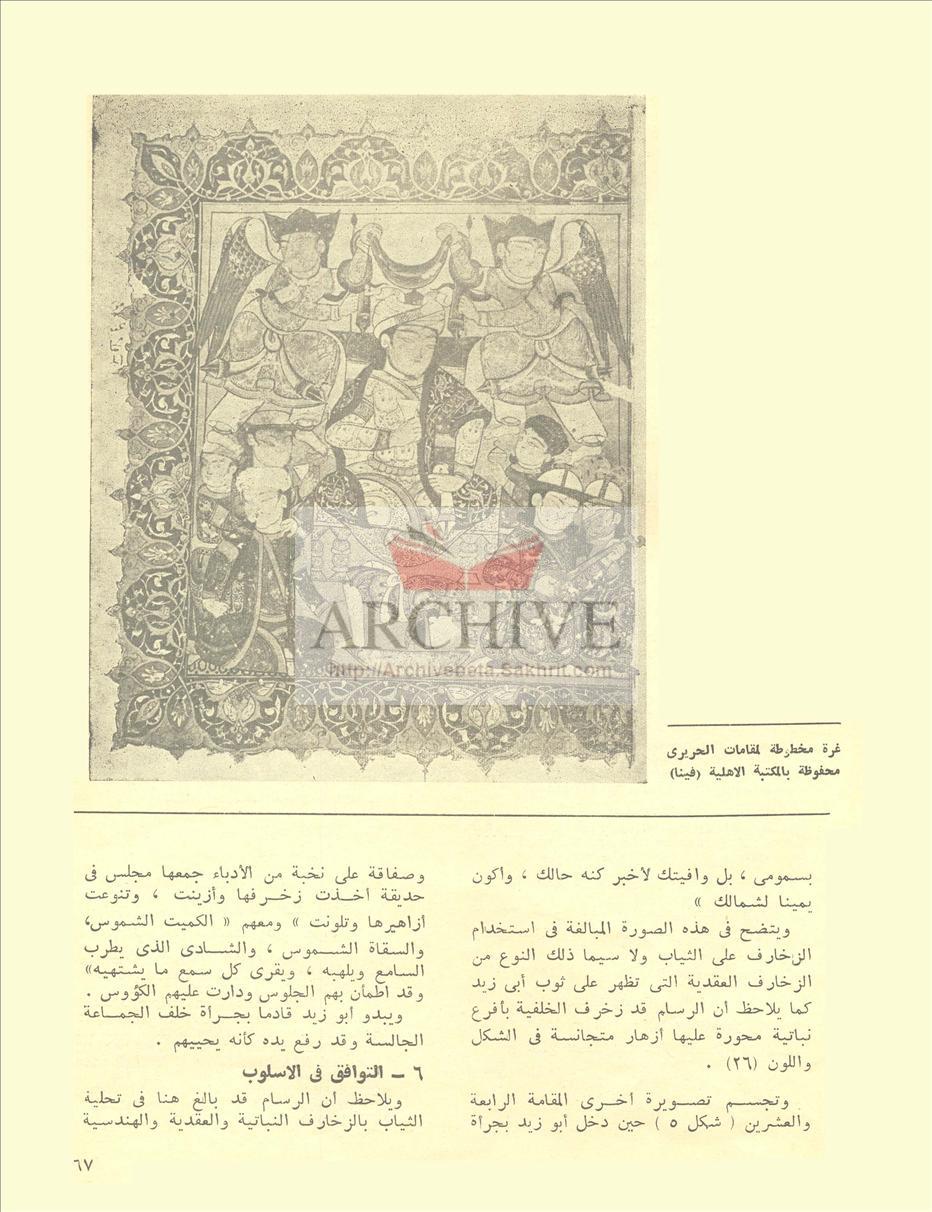 ARCHIVE
http://Archivebeta.Sakhrit.com
غرة مخطوطة لمقامات الحريرى
محفوظة بالمكتبة الاهلية (فينا)
بسمومى ، بل وافيتك لأخبر كنه حالك ، وأكون
يمينا لشمالك »
ويتضح فى هذه الصورة المبالغة فى استخدام
الزخارف على الثياب ولا سيما ذلك النوع من
الزخارف العقدية التى تظهر على ثوب أبى زيد
كما يلاحظ أن الرسام قد زخرف الخلفية بأفرع
نباتية محورة عليها أزهار متجانسة فى الشكل
واللون (٢٦) .
وتجسم تصويرة أخرى المقامة الرابعة
والعشرين ( شكل ٥ ) حين دخل أبو زيد بجرأة
وصفاقة على نخبة من الأدباء جمعها مجلس فى
حديقة أخذت زخرفها وأزينت ، وتنوعت
أزاهيرها وتلونت » ومعهم « الكميت الشموس،
والسقاة الشموس ، والشادى الذى يطرب
السامع ويلهيه ، ويقرى كل سمع ما يشتهيه»
وقد اطمأن بهم الجلوس ودارت عليهم الكؤوس .
ويبدو أبو زيد قادما بجرأة خلف الجماعة
الجالسة وقد رفع يده كأنه يحييهم .
٦ ــ التوافق فى الاسلوب
ويلاحظ أن الرسام قد بالغ هنا فى تحلية
الثياب بالزخارف النباتية والعقدية والهندسية
٦٧